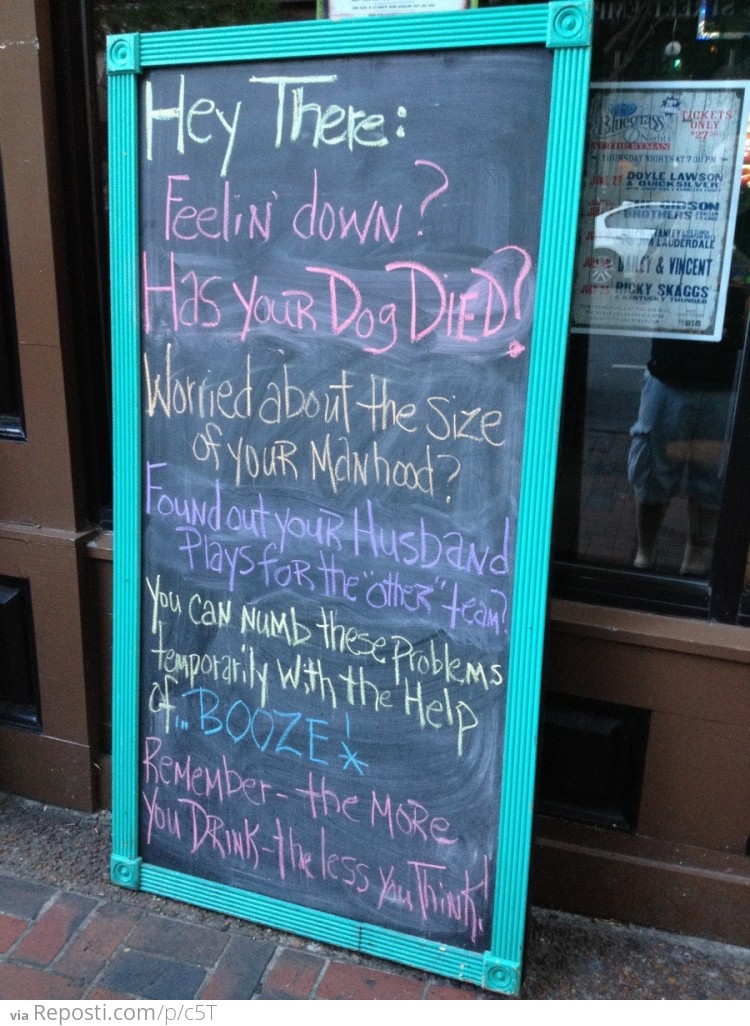 Hey There:
Feelin' down?
Has your Dog Died?
Worried about the size
of your Manhood?
Found out your Husband
Plays for the "other" team?
You can numb these Problems
temporarily with the Help
of... BOOZE! *
Remember - the more
you Drink - the less you Think!
Bluegrass
Nights
AT THE RYMAN
TICKETS
ONLY
THURSDAY NIGHTS AT 7:30 PM
DOYLE LAWSON
& QUICKSILVER
GIBSON
BROTHERS
LAUDERDALE
DAILEY & VINCENT
RICKY SKAGGS
& KENTUCKY THUNDER
via Reposti.com/p/c5T